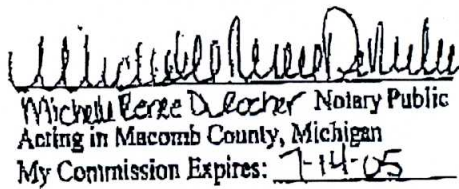 Michelle Renee Notary Public
Acting in Macomb County, Michigan
My Commission Expires: 7-14-05